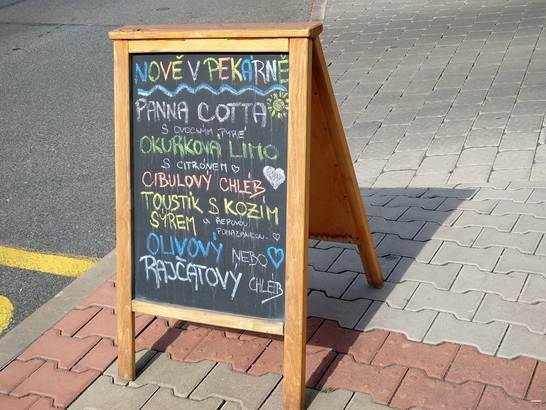 NOVĚ V PEKÁRNĚ
PANNA COTTA
S OVOCNÝM PYRÉ
OKURKOVÁ LIMO
S CITRÓNEM
CIBULOVÝ CHLÉB
TOUSTÍK S KOZÍM
SÝREM A ŘEPOVOU
POMAZÁNKOU
OLIVOVÝ NEBO
RAJČATOVÝ CHLÉB